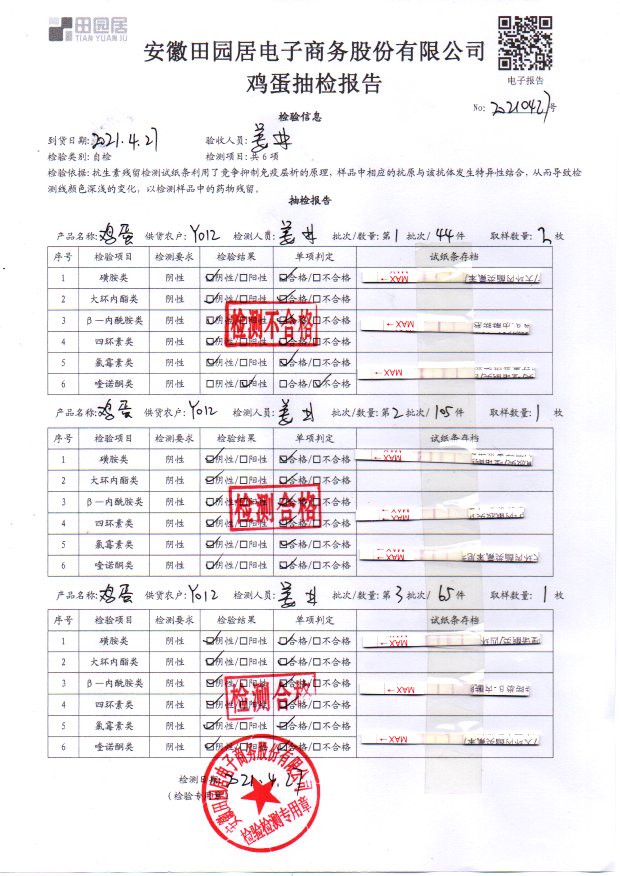 田园居
TIAN YUAN JU
安徽田园居电子商务股份有限公司
鸡蛋抽检报告
电子报告
No: 20210427号
检验信息
到货日期: 2021.4.27 验收人员: 姜
检验类别: 自检 检测项目: 共 6 项
检验依据: 抗生素残留检测试纸条利用了竞争抑制免疫层析的原理, 样品中相应的抗原与该抗体发生特异性结合, 从而导致检
测线颜色深浅的变化, 以检测样品中的药物残留。
抽检报告
产品名称: 鸡蛋 供货农户: Y012 检测人员: 姜 批次/数量: 第 1 批次/ 44 件 取样数量: 2 枚
序号 检验项目 检测要求 检验结果 单项判定 试纸条存档
1 磺胺类 阴性 ☑阴性/□阳性 ☑合格/□不合格 MAX
2 大环内酯类 阴性 ☑阴性/□阳性 ☑合格/□不合格
3 β—内酰胺类 阴性 ☑阴性/□阳性 ☑合格/□不合格 MAX
4 四环素类 阴性 ☑阴性/□阳性 ☑合格/□不合格
5 氯霉素类 阴性 ☑阴性/□阳性 ☑合格/□不合格
6 喹诺酮类 阴性 □阴性/☑阳性 □合格/☑不合格 MAX
检测不合格
产品名称: 鸡蛋 供货农户: Y012 检测人员: 姜 批次/数量: 第 2 批次/ 105 件 取样数量: 1 枚
序号 检验项目 检测要求 检验结果 单项判定 试纸条存档
1 磺胺类 阴性 ☑阴性/□阳性 ☑合格/□不合格 MAX
2 大环内酯类 阴性 ☑阴性/□阳性 ☑合格/□不合格
3 β—内酰胺类 阴性 ☑阴性/□阳性 ☑合格/□不合格
4 四环素类 阴性 ☑阴性/□阳性 ☑合格/□不合格 MAX
5 氯霉素类 阴性 ☑阴性/□阳性 ☑合格/□不合格
6 喹诺酮类 阴性 ☑阴性/□阳性 ☑合格/□不合格 MAX
检测合格
产品名称: 鸡蛋 供货农户: Y012 检测人员: 姜 批次/数量: 第 3 批次/ 65 件 取样数量: 1 枚
序号 检验项目 检测要求 检验结果 单项判定 试纸条存档
1 磺胺类 阴性 ☑阴性/□阳性 ☑合格/□不合格 MAX
2 大环内酯类 阴性 ☑阴性/□阳性 ☑合格/□不合格
3 β—内酰胺类 阴性 ☑阴性/□阳性 ☑合格/□不合格 MAX
4 四环素类 阴性 ☑阴性/□阳性 ☑合格/□不合格
5 氯霉素类 阴性 ☑阴性/□阳性 ☑合格/□不合格
6 喹诺酮类 阴性 ☑阴性/□阳性 ☑合格/□不合格 MAX
检测合格
检测日期: 2021.4.27
(检验专用章)
安徽田园居电子商务股份有限公司
检验检测专用章